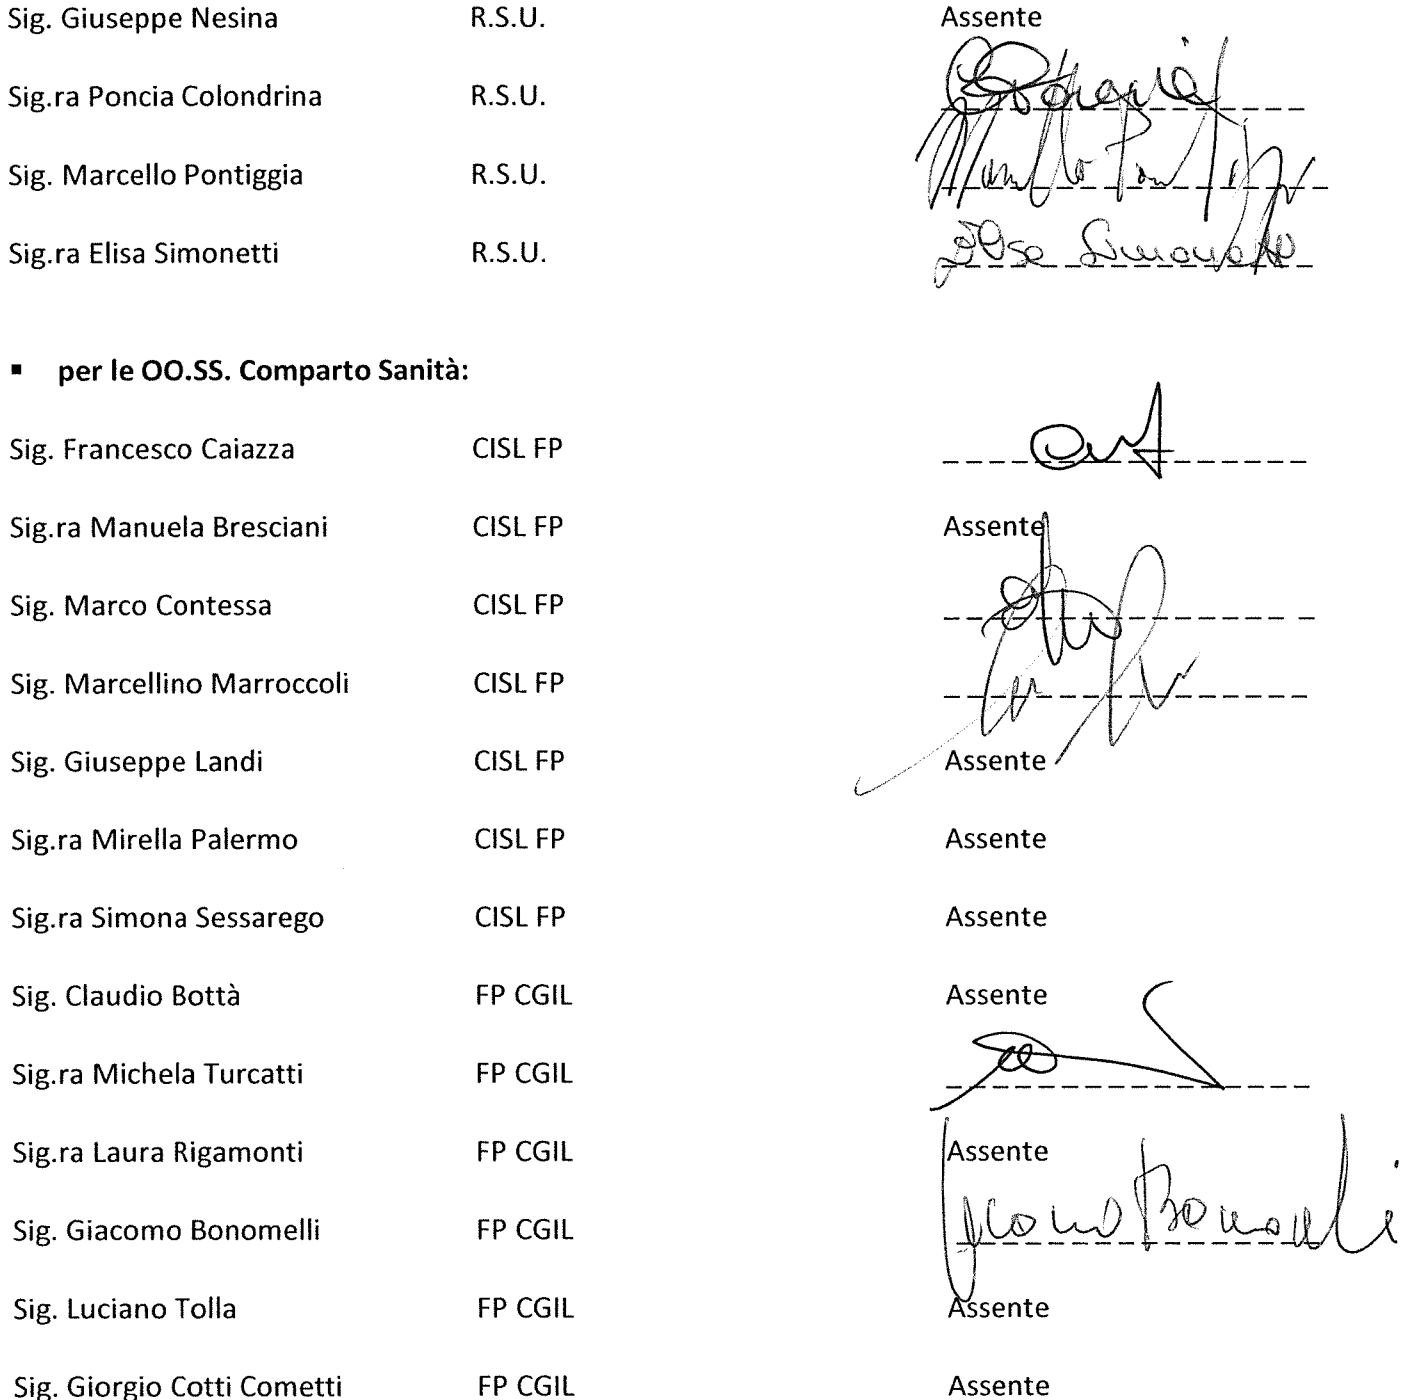 Sig. Giuseppe Nesina R.S.U. Assente
Sig.ra Poncia Colondrina R.S.U.
Sig. Marcello Pontiggia R.S.U.
Sig.ra Elisa Simonetti R.S.U.
▪ per le OO.SS. Comparto Sanità:
Sig. Francesco Caiazza CISL FP
Sig.ra Manuela Bresciani CISL FP Assente
Sig. Marco Contessa CISL FP
Sig. Marcellino Marroccoli CISL FP
Sig. Giuseppe Landi CISL FP Assente
Sig.ra Mirella Palermo CISL FP Assente
Sig.ra Simona Sessarego CISL FP Assente
Sig. Claudio Bottà FP CGIL Assente
Sig.ra Michela Turcatti FP CGIL
Sig.ra Laura Rigamonti FP CGIL Assente
Sig. Giacomo Bonomelli FP CGIL
Sig. Luciano Tolla FP CGIL Assente
Sig. Giorgio Cotti Cometti FP CGIL Assente